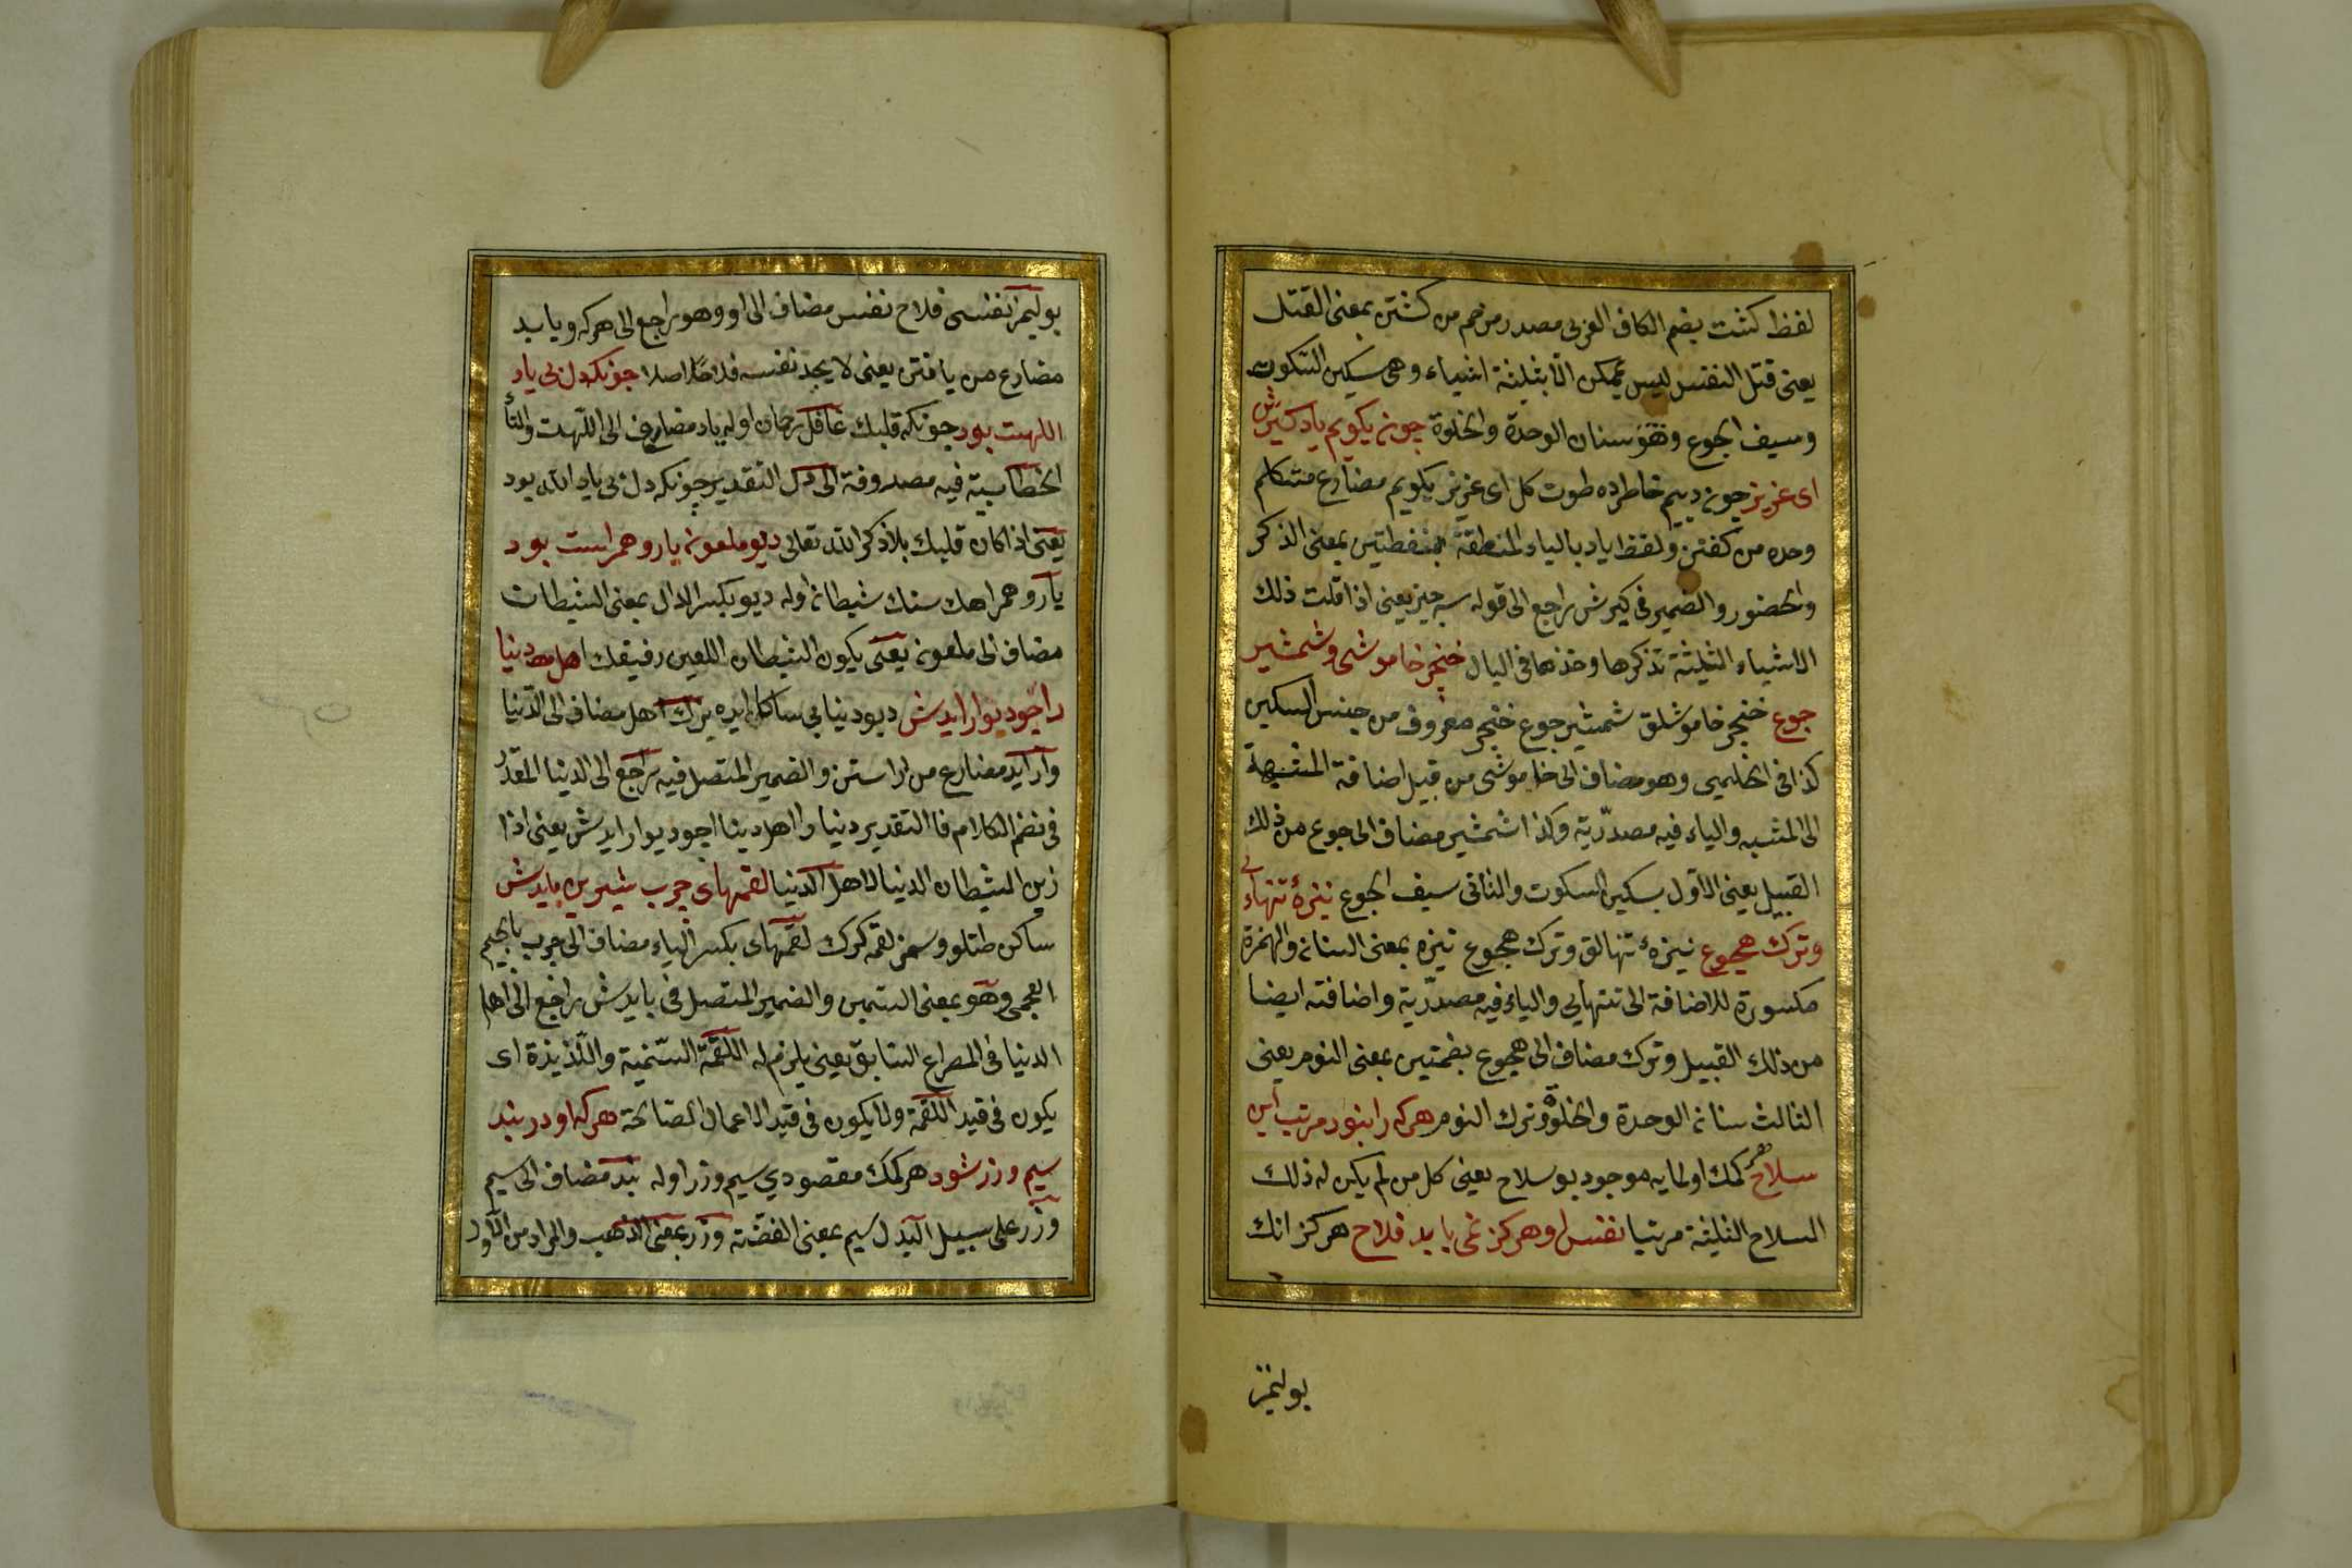 لفظ كشت بضم الكاف العربى مصدر مرخم من كشتن بمعنى القتل
يعنى قتل النفس ليس بممكن الا بثلثة اشياء وهى سكين السكوت
وسيف الجوع وهو سنان الوحدة والخلوة چون بكويم ياد كيرش
اى عزيز چون دييم خاطرده طوت كل اى عزيز بكويم مضارع متكلم
وحده من كفتن ولفظ ياد بالياء المنطقة بنقطتين بمعنى الذكر
والحضور والضمير فى كيرش راجع الى قوله سه چيز يعنى اذا قلت ذلك
الاشياء الثلثة تذكرها وخذها فى البال خنجر خاموشى وشمشير
جوع خنجر خاموشلق شمشير جوع خنجر معروف من جنس السكين
كذا فى الحليمى وهو مضاف الى خاموشى من قبيل اضافة المشبهة
الى المشبه والياء فيه مصدرية وكذا شمشير مضاف الى جوع من ذلك
القبيل يعنى الاول سكين السكوت والثانى سيف الجوع نيزهٔ تنهاءى
وترك هجوع نيزهٔ تنهالق وترك هجوع نيزه بمعنى السنان والهمزة
مكسورة للاضافة الى تنهايى والياء فيه مصدرية واضافته ايضا
من ذلك القبيل وترك مضاف الى هجوع بضمتين بمعنى النوم يعنى
الثالث سنان الوحدة والخلوة وترك النوم هركه را نبود مرتب اين
سلاح هر كمك اولمايه موجود بو سلاح يعنى كل من لم يكن له ذلك
السلاح الثلثة مرتبا نفس او هركز نمى يابد فلاح هركز انك
بولمز
بولمز نفسى فلاح نفس مضاف الى او وهو راجع الى هركه ويابد
مضارع من يافتن يعنى لا يجد نفسه فلاحا اصلا چونكه دل بى ياد
اللهت بود چونكه قلبك غافل رحمان اوله ياد مضاف الى اللهت والتاء
الخطابية فيه مصروفة الى دل التقدير چونكه دل بى ياد الله بود
يعنى اذا كان قلبك بلا ذكر الله تعالى ديو ملعون يار وهمراست بود
يار وهمراهك سنك شيطان اوله ديو بكسر الدال بمعنى الشيطان
مضاف الى ملعون يعنى يكون الشيطان اللعين رفيقك اهل دنيا
را چو ديو ارايدش ديو دنيايى ساكا ايده برك اهل مضاف الى الدنيا
وارايد مضارع من اراستن والضمير المتصل فيه راجع الى الدنيا المقدر
فى نضم الكلام فا التقدير دنيا را اهل دنيا را چو ديو ارايدش يعنى اذا
زين الشيطان الدنيا لاهل الدنيا لقمهاى چرب شيرين بايدش
ساكن طتلو وسمز لقمه كرك لقمهاى بكسر الياء مضاف الى چرب بالجيم
العجمى وهو بمعنى السمين والضمير المتصل فى بايدش راجع الى اهل
الدنيا فى المصراع السابق يعنى يلزم له اللقمة السمنية واللذيذة اى
يكون فى قيد اللقمة ولا يكون فى قيد الاعمال الصالحة هركه او در بند
سيم وزر شود هر كمك مقصودي سيم وزر اوله بند مضاف الى سيم
وزر على سبيل البدل سيم بمعنى الفضة وزر بمعنى الذهب والمراد من الاول